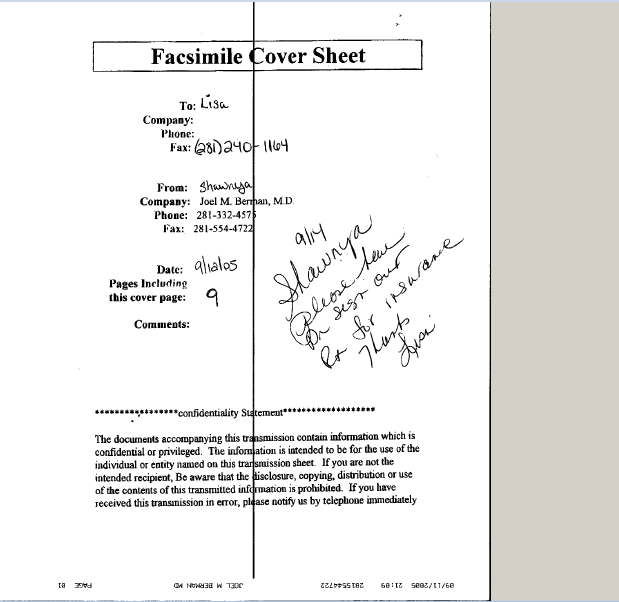 Facsimile Cover Sheet
To: Lisa
Company:
Phone:
Fax: (281)240-1164
From: Shawnya
Company: Joel M. Berman, M.D.
Phone: 281-332-4575
Fax: 281-554-4722
Date: 9/12/05
Pages Including
this cover page: 9
Comments:
9/14
Shawnya
Please have
Dr sign our
Rx for insurance
Thanks
Lisa
*****************confidentiality Statement*******************
The documents accompanying this transmission contain information which is
confidential or privileged. The information is intended to be for the use of the
individual or entity named on this transmission sheet. If you are not the
intended recipient, Be aware that the disclosure, copying, distribution or use
of the contents of this transmitted information is prohibited. If you have
received this transmission in error, please notify us by telephone immediately
09/11/2005 21:09 2815544722 JOEL W BERMAN MD PAGE 01